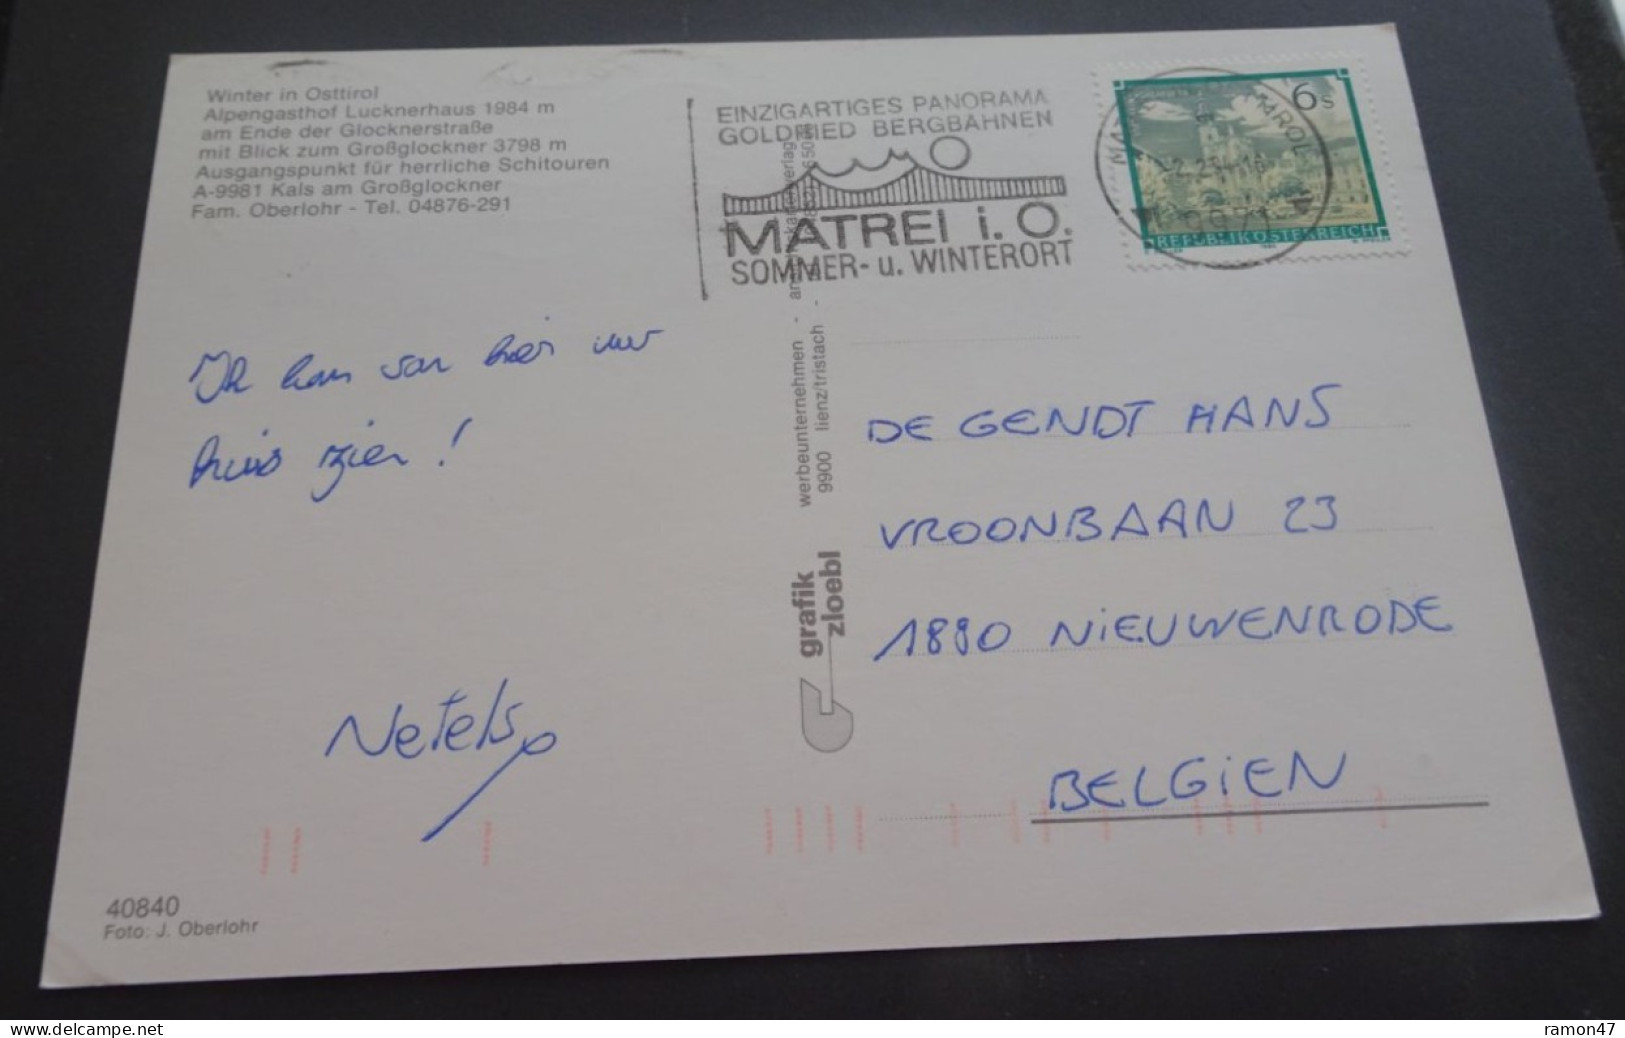 Winter in Osttirol
Alpengasthof Lucknerhaus 1984 m
am Ende der Glocknerstraße
mit Blick zum Großglockner 3798 m
Ausgangspunkt für herrliche Schitouren
A-9981 Kals am Großglockner
Fam. Oberlohr - Tel. 04876-291
EINZIGARTIGES PANORAMA
GOLDRIED BERGBAHNEN
MATREI i. O.
SOMMER- u. WINTERORT
6 S
9971
REPUBLIK ÖSTERREICH
Ik kan van hier uw
huis zien!
Netels
werbeunternehmen - ansichtskartenverlag
9900 lienz/tristach -
grafik
zloebl
DE GENDT HANS
VROONBAAN 23
1880 NIEUWENRODE
BELGIEN
40840
Foto: J. Oberlohr
www.delcampe.net
ramon47